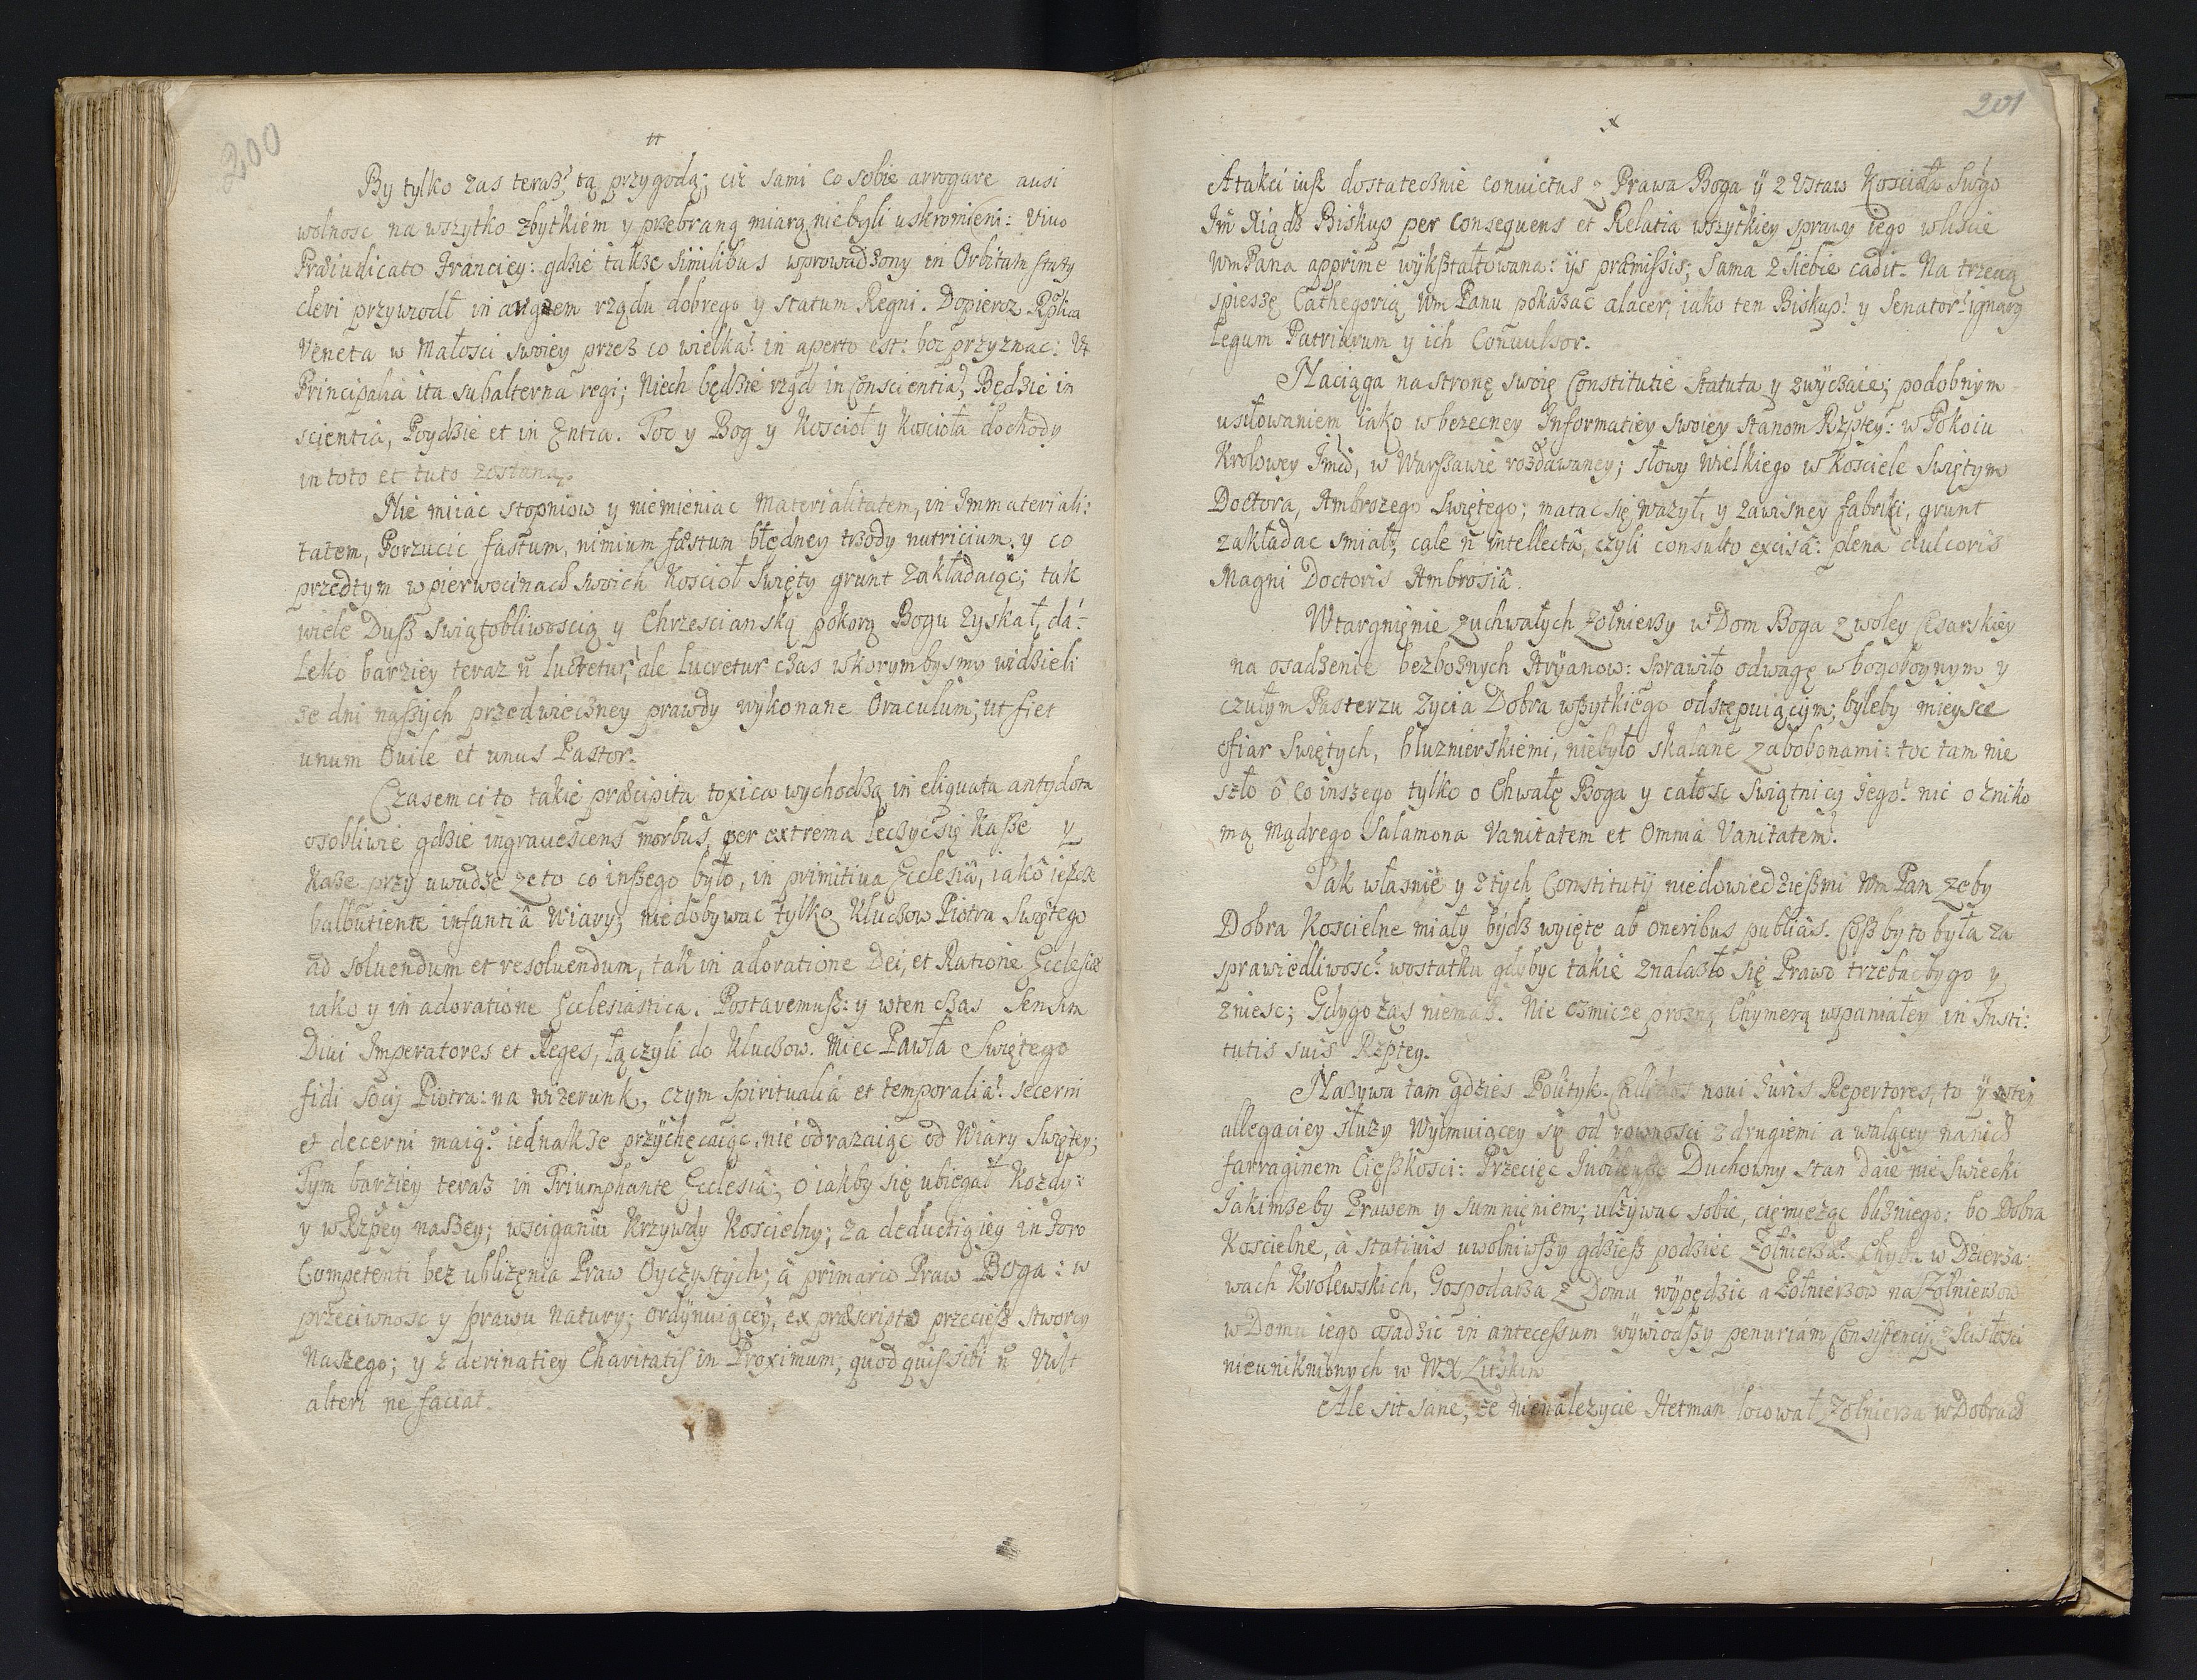 200
By tylko zas teraz, tą przygodą; ciż sami co sobie arrogare ausi
wolnosc na wszytko zbytkiem y przebraną miarą niebyli uskromieni: Viuo
Præiudicato Franciey: gdzie także similibus wprowadzony in Orbitam
cleri przywiodł in rządu dobrego y statum Regni. Dopieroz Rplica
Veneta w Małosci swoiey przez co wielka? in aperto est: boc przyznac: Vt
Principalia ita subalterna regi; Niech będzie rząd in Conscientia, Będzie in
scientia, Poydzie et in Entia. Toc y Bog y Koscioł y Koscioła dochody
in toto et tuto zostaną.
Nie miiac stopniow y niemieniac Materialitatem, in Immateriali:
tatem, Porzucic fastum, nimium fæstum błędney trzody nutricium, y co
przedtym w pierwocinach swoich Koscioł Swięty grunt zakładaiąc; tak
wiele Dusz swiątobliwoscią y Chrzescianską pokorą Bogu zyskał, da:
leko barziey teraz ñ luctetur, ale lucretur czas wkorymbysmy widzieli
ze dni naszych przedwieczney prawdy wykonane Oraculum; ut fiet
unum Ouile et unus Pastor.
Czasem ci to takie præcipita toxica wychodzą in eliquata antydota
osobliwie gdzie ingrauescens morbus, per extrema leczyc się Kasze y
Kaze przy uwadze ze to co inszego było, in primitiua Ecclesia, iako ieszcze
balbutiente infantia Wiary; niedobywac tylko Kluczow Piotra Swiętego
ad soluendum et resoluendum, tak in adoratione Dei, et Ratione Ecclesiæ
iako y in adoratione Ecclesiastica. Postaremusz: y wten czas Sensim
Diui Imperatores et Reges, łączyli do Kluczow. Miec Pawła Swiętego
fidi socij Piotra: na wizerunk, czym spiritualia et temporalia? secerni
et decerni maią? iednakze przychęcaiąc, nie odrazaiąc od Wiary Swiętey;
Tym barziey teraz in Triumphante Ecclesia; o iakby się ubiegał Kozdy:
y w Rzpey naszey; wsciganiu Krzywdy Koscielny; za deductią iey in Foro
Competenti bez ubliżenia Praw Oyczystych; à primario Praw Boga: w
przeciwnosc y prawu natury; ordynuiącey, ex præscripto przeciesz Stworcy
Naszego; y z deriuatiey Charitatis in Proximum, quod quis sibi ñ Vult
alteri ne faciat.
201
Atakci iusz dostatecznie conuictus z Prawa Boga ÿ z Vstaw Koscioła Swgo
Jm Xiądz Biskup per Consequens et Relatia wszytkiey sprawy iego wliscie
WmPana apprime wykształtowana: ijs præmissis, sama z siebie cadit. Na trzecią
spieszę Cathegorią Wm Panu pokazac alacer, iako ten Biskup? y Senator? ignarg
Legum Patriarum y ich Conuulsor.
Naciąga na stronę swoię Constitutie Statuta y zwyczaie; podobnym
usiłowaniem iako w bezecney Informatiey swoiey stanom Rzptey: w Pokoiu
Krolowey Jmci, w Warszawie rozdawaney; słowy Wielkiego w Kosciele Swiętym
Doctora, Ambrozego Swiętego; matac się ważył, y zawisney fabriki, grunt
zakładac smiał, cale ñ intellectâ, czyli consulto excisâ: plena dulcoris
Magni Doctoris Ambrosia.
Wtargnięnie zuchwałych żołnierzy w Dom Boga z woley Cesarskiey
na osadzenie bezbożnych Aryanow: sprawiło odwagę w bogoboynym y
czułym Pasterzu życia Dobra wszytkiego odstępuiącym; byleby mieysce
ofiar swiętych, bluznierskiemi, niebyło skalane zabobonami: toc tam nie
szło o co inszego tylko o Chwałę Boga y całosc swiątnicy iego? nie o zniko
mą Mądrego Salamona Vanitatem et Omnia Vanitatem?
Tak własnie y z tych Constitutij niedowiedzieszmi Wm Pan zeby
Dobra Koscielne miały bydz wyięte ab oneribus publicis. Cosz by to była za
sprawiedliwosc? wostatku gdybyc takie znalazło się Prawo trzebac by go y
zniesc; Gdy go zas niemasz. Nie cmicze prozną Chymerą wspaniałey in Insti:
tutis suis Rzptey.
Nazywa tam gdzies Polityk. Callidos noui Iuris Repertores, to ÿ wtey
allegaciey służy Wyimuiącey się od rownosci z drugiemi a walącey na nich
farraginem Ciężkosci: Przecięc Jubileusze Duchowny stan daie nie Swiecki
Jakimzeby Prawem y sumnięniem; ulżywac sobie, ciemieząc blizniego: bo Dobra
Koscielne, à statiuis uwolniwszy gdziesz podziec Żołnierza? Chyba w Dzierza:
wach Krolewskich, Gospodarza z Domu wypędzic a Żołnierzow na Żołnierzow
w Domu iego osadzic in antecessum wywiodszy penuriam Consistencij, z scisłosci
nieuniknionych w WX Littskim
Ale sit sane, że nienalezycie Hetman locował Żołnierza w Dobrach